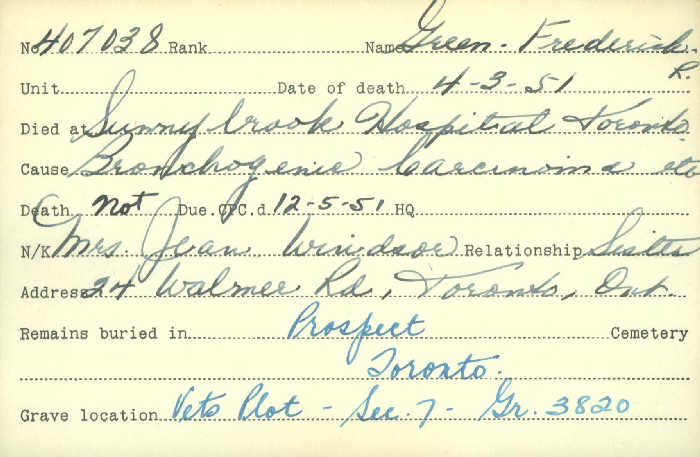 No 407038 Rank Name Green. Frederick.
R.
Unit Date of death 4-3-51
Died at Sunnybrook Hospital Toronto
Cause Bronchogenic Carcinoma etc
Death Not Due. CPC.d. 12-5-51 HQ
N/K Mrs. Jean Windsor Relationship Sister
Address 24 Walmer Rd, Toronto, Ont.
Remains buried in Prospect Cemetery
Toronto.
Grave location Vets Plot - Sec. 7 - Gr. 3820